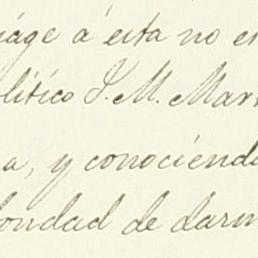 iáge á esta no en
olítico J. M. Marr
a, y conociendo
bondad de darm